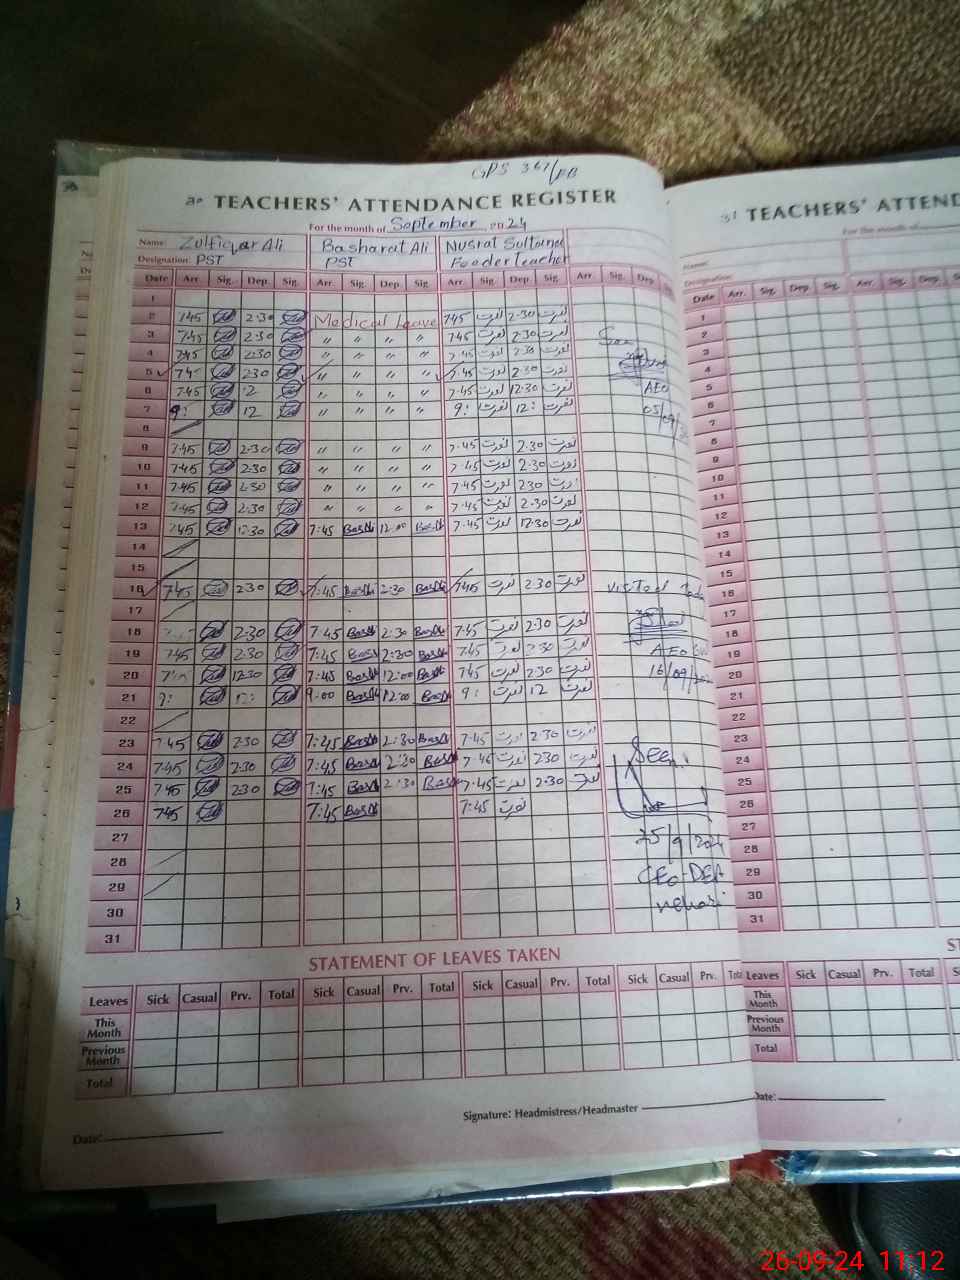 GPS 367/EB
30 TEACHERS' ATTENDANCE REGISTER
For the month of September 2024
Name: Zulfiqar Ali Basharat Ali Nusrat Sultana
Designation: PST PST Feeder Teacher
Date Arr. Sig. Dep. Sig. Arr. Sig. Dep. Sig. Arr. Sig. Dep. Sig. Arr. Sig. Dep.
1
2 7.45 2.30 Medical Leave 7.45 نصرت 2.30 نصرت
3 7.45 2.30 〃 〃 〃 〃 7.45 نصرت 2.30 نصرت
4 7.45 2.30 〃 〃 〃 〃 7.45 نصرت 2.30 نصرت
5 7.4 2.30 〃 〃 〃 〃 7.45 نصرت 2.30 نصرت
6 7.45 12 〃 〃 〃 〃 7.45 نصرت 12.30 نصرت AEO
7 9: 12 〃 〃 〃 〃 9: نصرت 12: نصرت 05/09/
8
9 7.45 2.30 〃 〃 〃 〃 7.45 نصرت 2.30 نصرت
10 7.45 2.30 〃 〃 〃 〃 7.45 نصرت 2.30 نصرت
11 7.45 2.30 〃 〃 〃 〃 7.45 نصرت 2.30 نصرت
12 7.45 2.30 〃 〃 〃 〃 7.45 نصرت 2.30 نصرت
13 7.45 12.30 7:45 Bash 12:00 Bash 7.45 نصرت 12.30 نصرت
14
15
16 7.45 2.30 7:45 Bash 2:30 Bash 7.45 نصرت 2.30 نصرت visited
17
18 2.30 7:45 Bash 2:30 Bash 7.45 نصرت 2.30 نصرت
19 7.45 2.30 7:45 Bash 2:30 Bash 7.45 نصرت 2.30 نصرت AEO
20 12.30 7:45 Bash 12:00 Bash 7.45 نصرت 2.30 نصرت 16/09/
21 9: 12: 9:00 Bash 12:00 Bash 9: نصرت 12 نصرت
22
23 7.45 2.30 7:45 Bash 2:30 Bash 7.45 نصرت 2.30 نصرت
24 7.45 2.30 7:45 Bash 2:30 Bash 7.45 نصرت 2.30 نصرت Seen
25 7.45 2.30 7:45 Bash 2:30 Bash 7.45 نصرت 2.30 نصرت
26 7.45 7:45 Bash 7.45 نصرت
27 25/9/2024
28
29 CEO-DEA
30 vehari
31
STATEMENT OF LEAVES TAKEN
Leaves Sick Casual Prv. Total Sick Casual Prv. Total Sick Casual Prv. Total Sick Casual Prv.
This Month
Previous Month
Total
Signature: Headmistress/Headmaster
Date:
31 TEACHERS' ATTEND
For the month of
Name:
Designation:
Date Arr. Sig. Dep. Sig. Arr. Sig. Dep.
1
2
3
4
5
6
7
8
9
10
11
12
13
14
15
16
17
18
19
20
21
22
23
24
25
26
27
28
29
30
31
Leaves Sick Casual Prv. Total Sick
This Month
Previous Month
Total
Date:
26-09-24 11:12